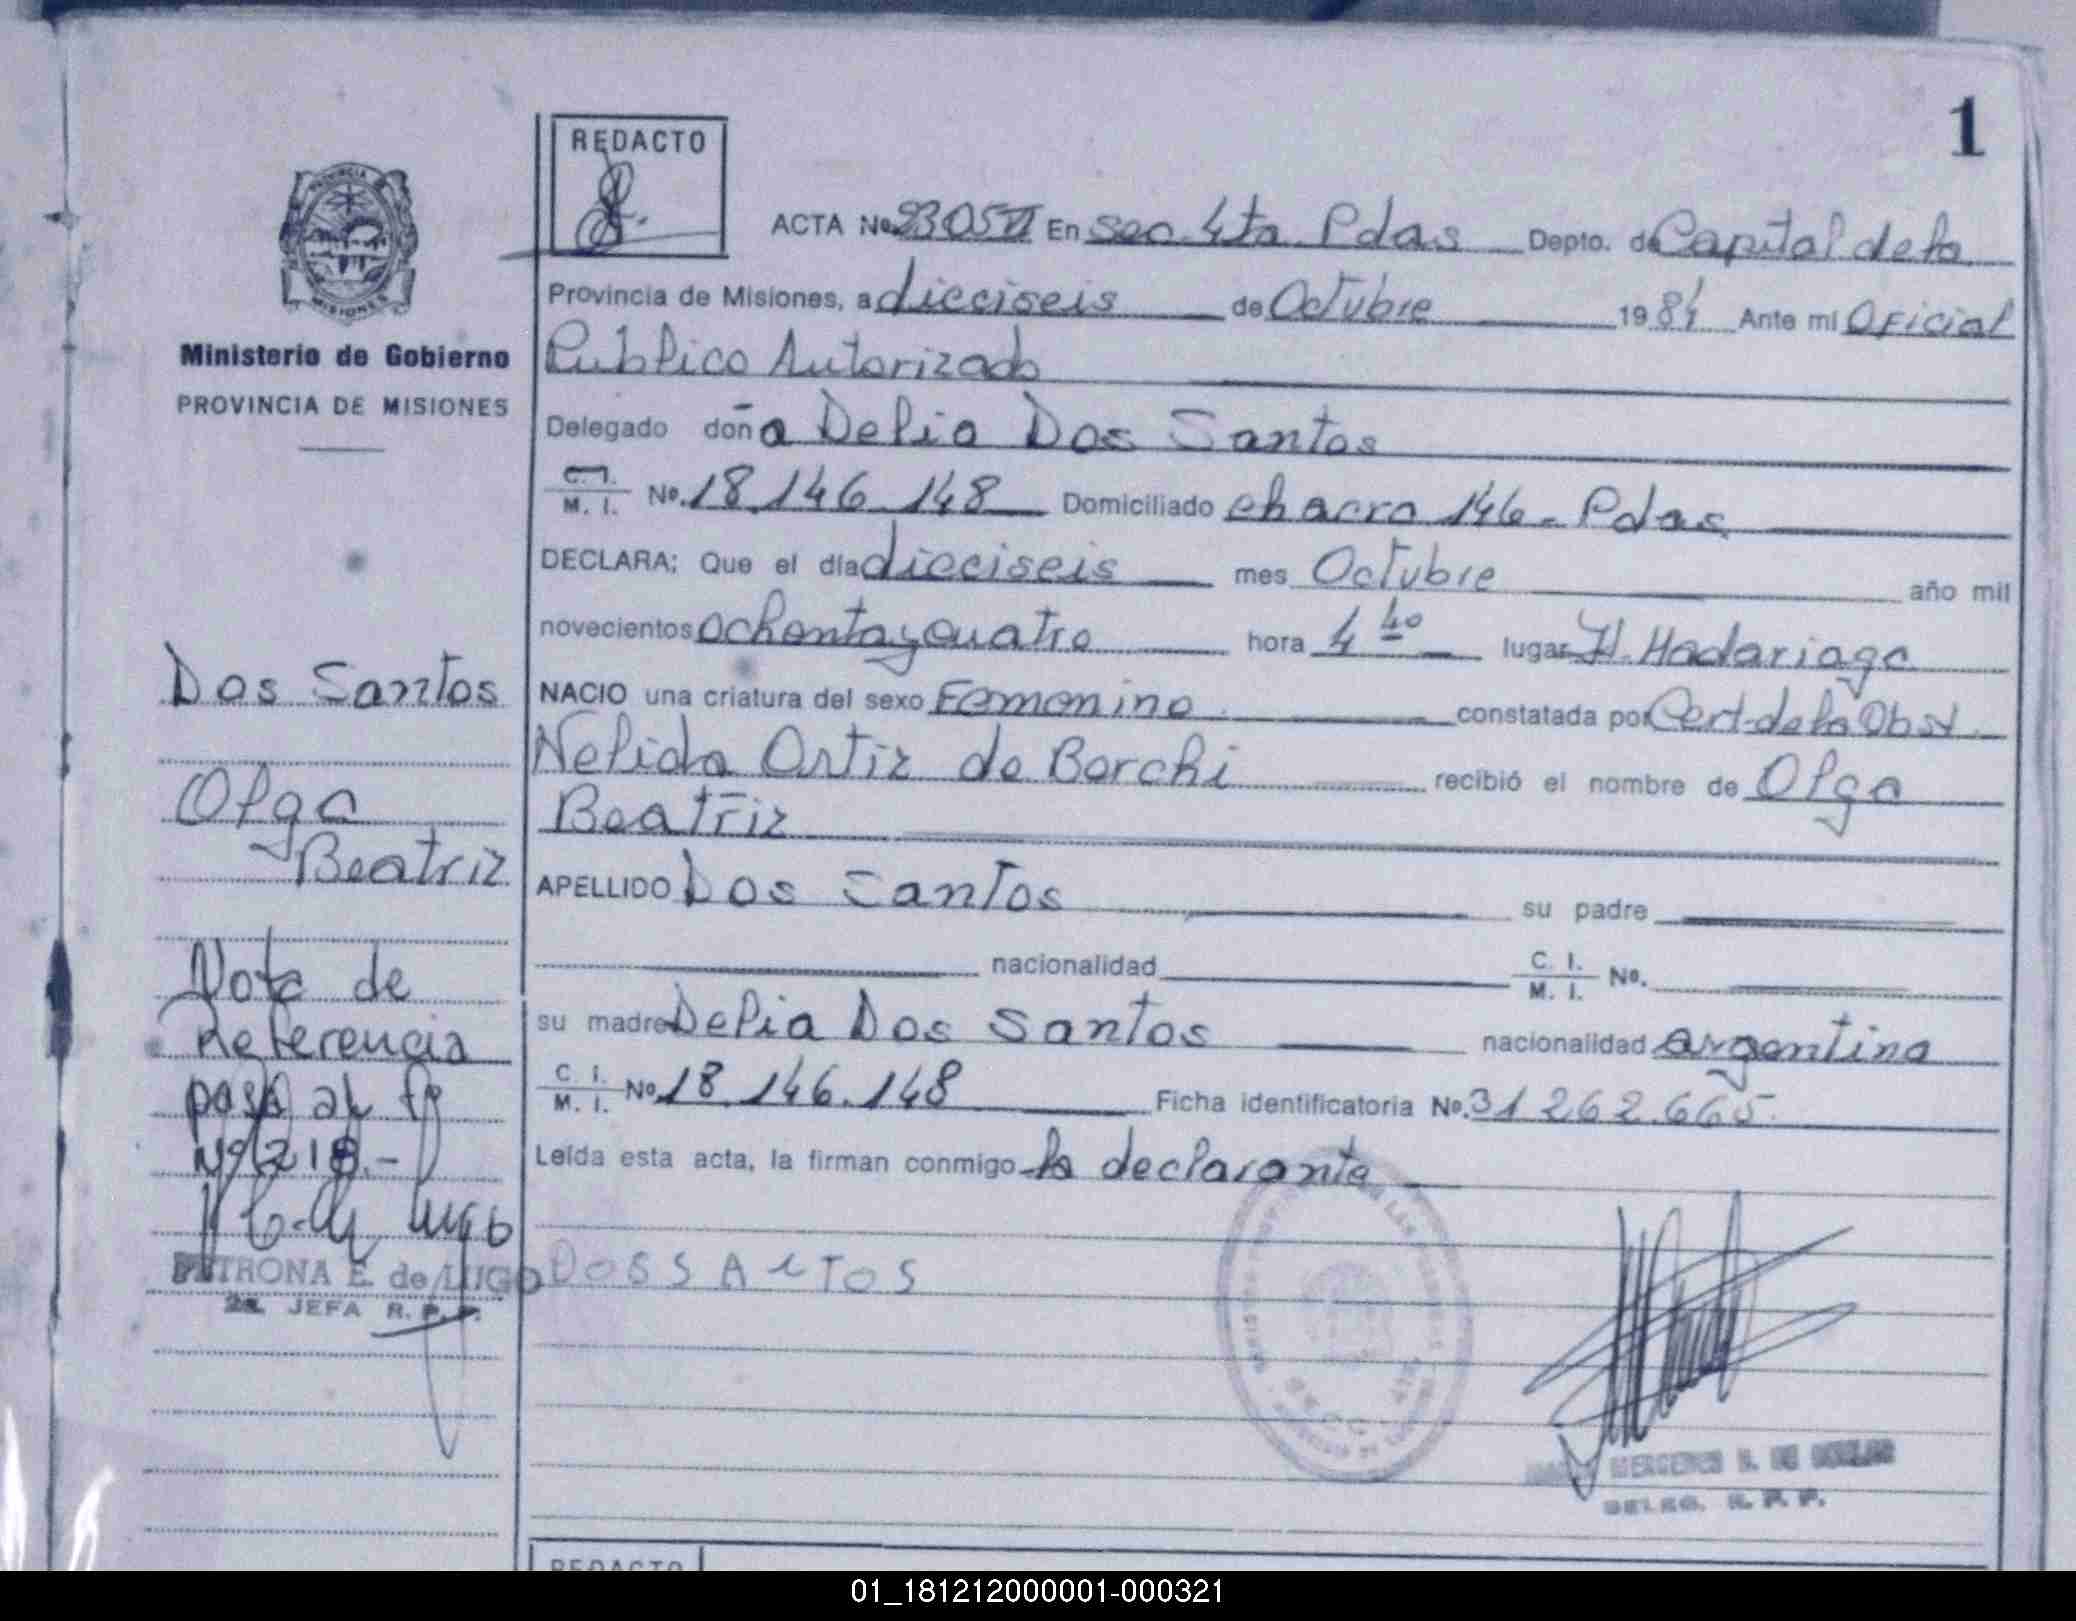 1
REDACTO
PROVINCIA DE
MISIONES
Ministerio de Gobierno
PROVINCIA DE MISIONES
ACTA No. En Sec. 4ta. Pdas Depto. de Capital de la
Provincia de Misiones, a dieciseis de Octubre 1984 Ante mi Oficial
Publico Autorizado
Delegado doña Delia Dos Santos
C. I. / M. I. No. 18.146.148 Domiciliado chacra 146 - Pdas
DECLARA; Que el día dieciseis mes Octubre año mil
novecientos ochenta y cuatro hora 4 40 lugar H. Madariaga
NACIO una criatura del sexo Femenino constatada por Cert. de la Obst.
Nelida Ortiz de Borchi recibió el nombre de Olga
Beatriz
APELLIDO Dos Santos su padre
nacionalidad C. I. / M. I. No.
su madre Delia Dos Santos nacionalidad argentina
C. I. / M. I. No. 18.146.148 Ficha identificatoria No. 31.262.665.
Leída esta acta, la firman conmigo la declarante
DOS SANTOS
Dos Santos
Olga
Beatriz
Nota de
Referencia
pasa al
Nº 218.-
PETRONA E. de LUGO
2a. JEFA R. P. P.
MERCEDES DE
DELEG. R. P. P.
REDACTO
01_181212000001-000321